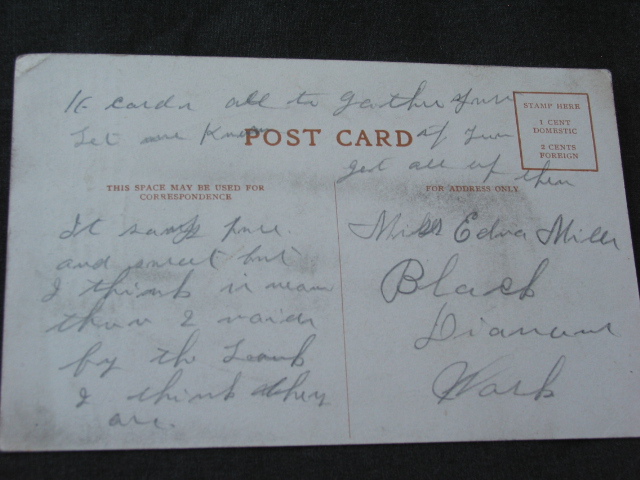 16 cards all to gather
Let me Know
POST CARD
get all of them
STAMP HERE
1 CENT
DOMESTIC
2 CENTS
FOREIGN
THIS SPACE MAY BE USED FOR
CORRESPONDENCE
FOR ADDRESS ONLY
It says pure
and sweet but
I think it mean
then 2 maids
by the
I think they
are.
Miss Edna Miller
Black
Diamond
Wash